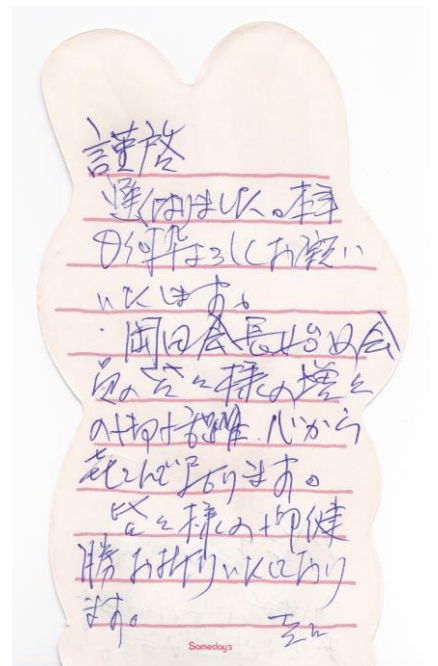 謹啓
遅くなりました。本年
も何卒よろしくお願い
いたします。
岡田会長始め会
員の皆々様の増々
の御活躍、心から
喜こんで居ります。
皆々様の御健
勝お祈りいたしており
ます。
Someday's